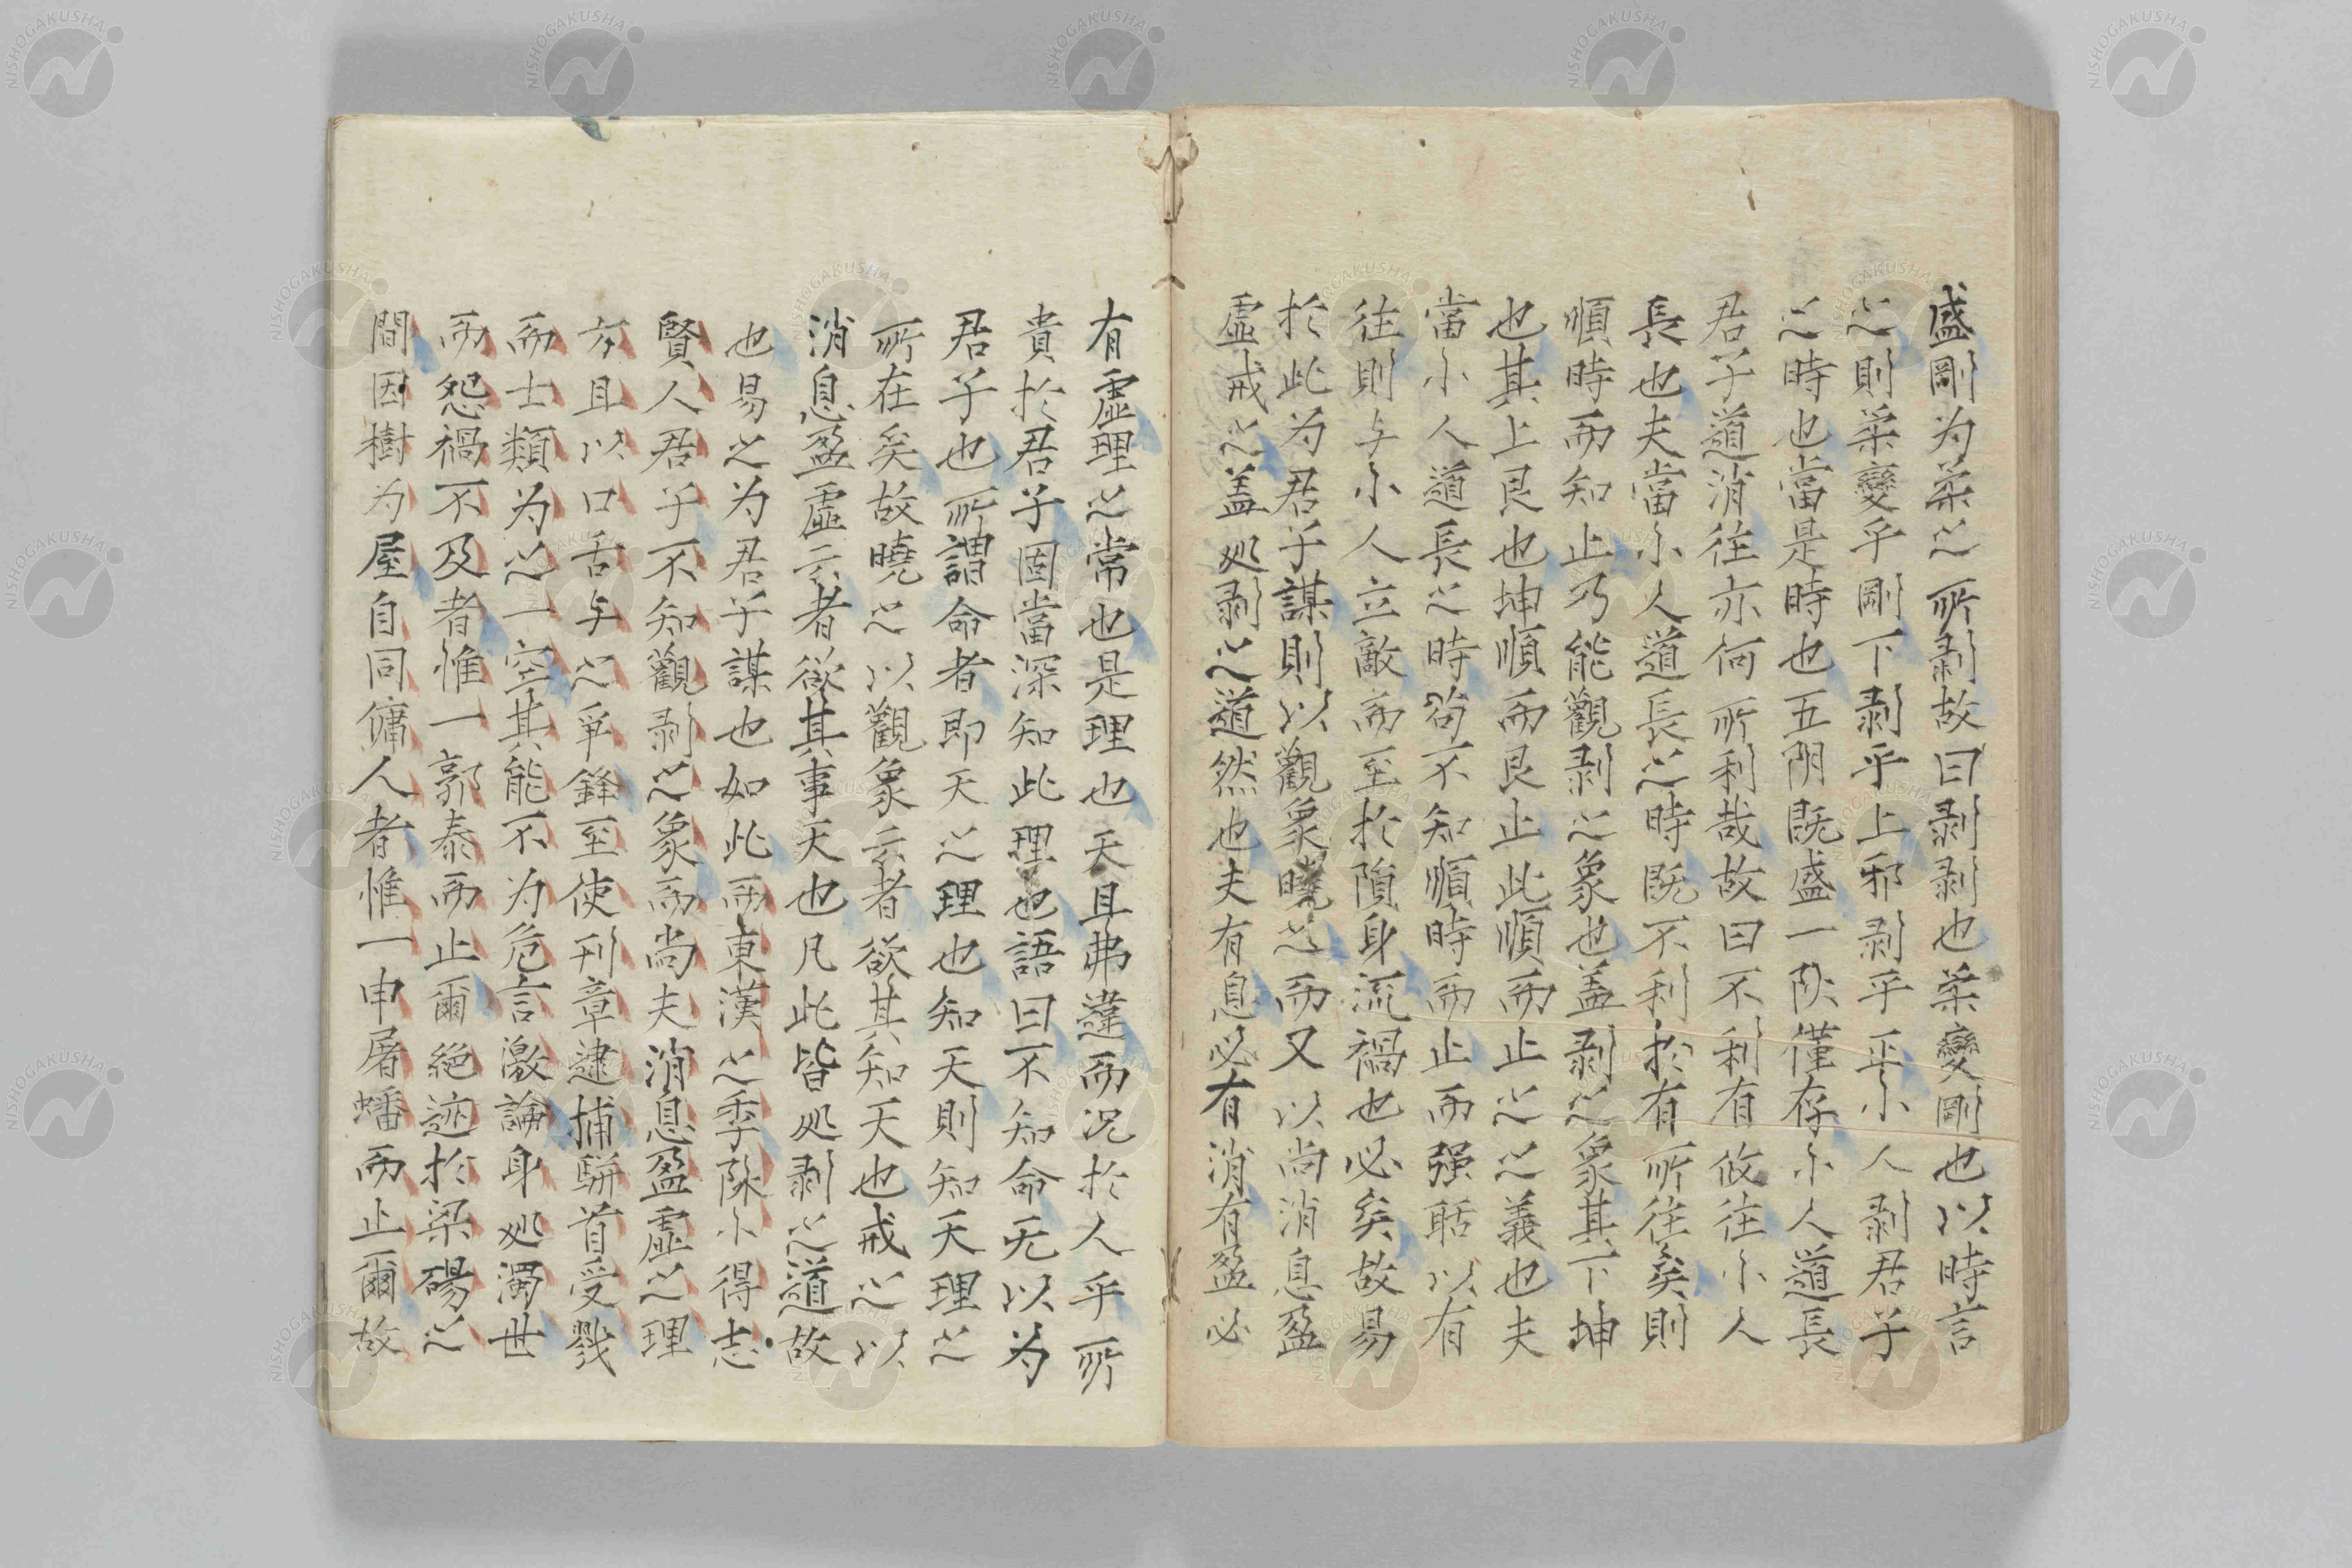 盛剛为柔之所剥故曰剥剥也柔變剛也以時言
之則柔變乎剛下剥乎上邪剥乎正小人剥君子
之時也當是時也五阴既盛一阦僅存小人道長
君子道消往亦何所利哉故曰不利有攸往小人
長也夫當小人道長之時既不利於有所往矣則
順時而知止乃能觀剥之象也盖剥之象其下坤
也其上艮也坤順而艮止此順而止之之義也夫
當小人道長之時苟不知順時而止而强聒以有
往則与小人立敵而至於隕身流禍也必矣故易
於此为君子謀則以觀象曉之而又以尚消息盈
虛戒之盖処剥之道然也夫有息必有消有盈必
有虛理之常也是理也天且弗違而况於人乎所
貴於君子固當深知此理也語曰不知命无以为
君子也所謂命者即天之理也知天則知天理之
所在矣故曉之以觀象云者欲其知天也戒之以
消息盈虛云者欲其事天也凡此皆処剥之道故
也易之为君子謀也如此而東漢之季阦小得志
賢人君子不知觀剥之象而尚夫消息盈虛之理
方且以口舌与之爭鋒至使刊章逮捕駢首受戮
而士類为之一空其能不为危言激論身処濁世
而怨禍不及者惟一郭泰而止爾絕迹於梁碭之
間因樹为屋自同傭人者惟一申屠蟠而止爾故
NISHOGAKUSHA